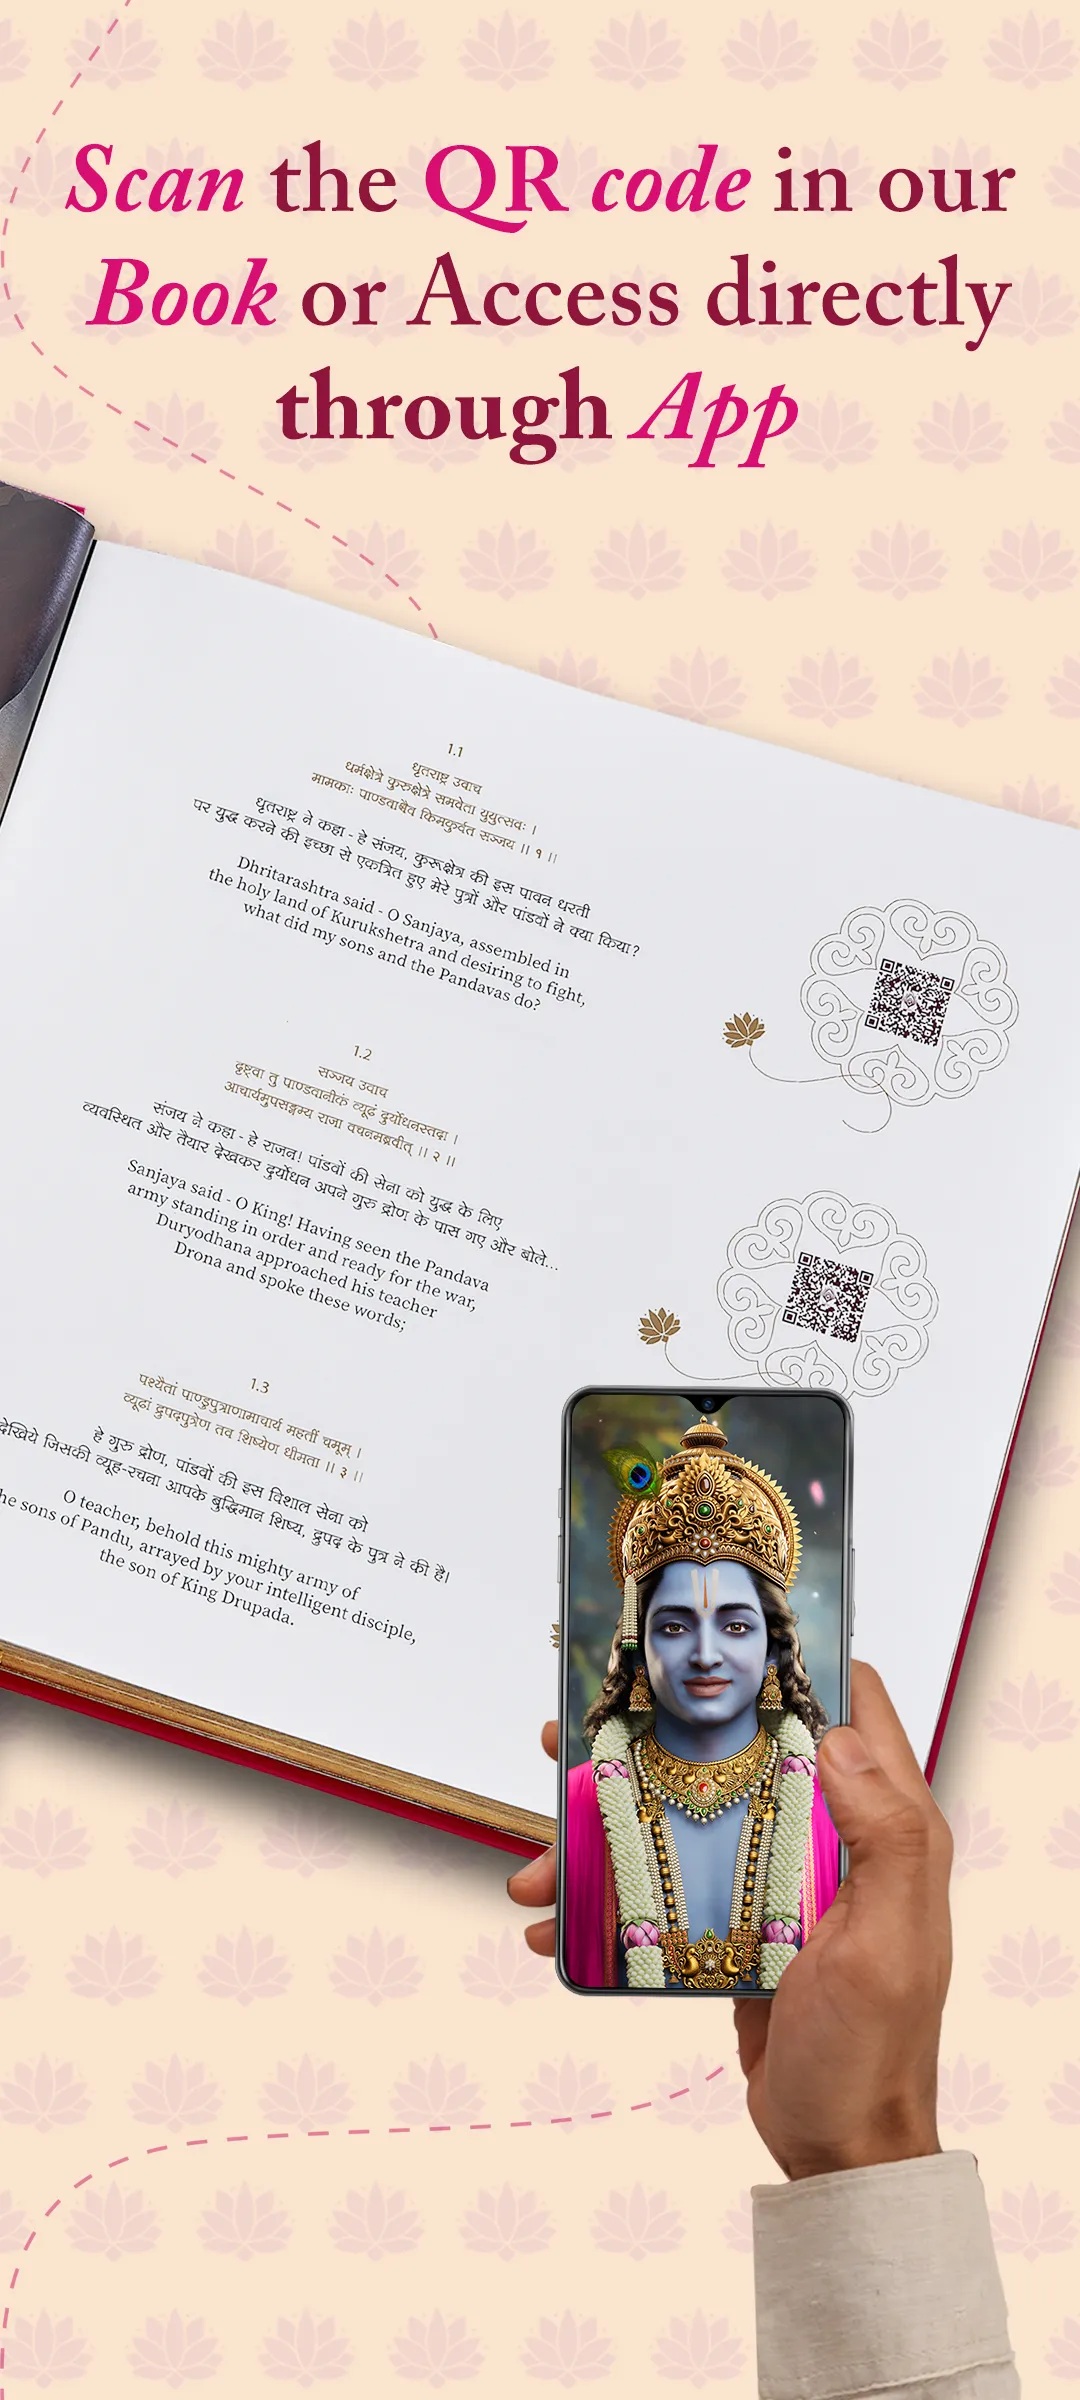 Scan the QR code in our
Book or Access directly
through App
1.1
धृतराष्ट्र उवाच
धर्मक्षेत्रे कुरुक्षेत्रे समवेता युयुत्सवः ।
मामकाः पाण्डवाश्चैव किमकुर्वत सञ्जय ।। १ ।।
धृतराष्ट्र ने कहा - हे संजय, कुरूक्षेत्र की इस पावन धरती
पर युद्ध करने की इच्छा से एकत्रित हुए मेरे पुत्रों और पांडवों ने क्या किया?
Dhritarashtra said - O Sanjaya, assembled in
the holy land of Kurukshetra and desiring to fight,
what did my sons and the Pandavas do?
1.2
सञ्जय उवाच
दृष्ट्वा तु पाण्डवानीकं व्यूढं दुर्योधनस्तदा ।
आचार्यमुपसङ्गम्य राजा वचनमब्रवीत् ।। २ ।।
संजय ने कहा - हे राजन! पांडवों की सेना को युद्ध के लिए
व्यवस्थित और तैयार देखकर दुर्योधन अपने गुरु द्रोण के पास गए और बोले...
Sanjaya said - O King! Having seen the Pandava
army standing in order and ready for the war,
Duryodhana approached his teacher
Drona and spoke these words;
1.3
पश्यैतां पाण्डुपुत्राणामाचार्य महतीं चमूम् ।
व्यूढां द्रुपदपुत्रेण तव शिष्येण धीमता ।। ३ ।।
हे गुरु द्रोण, पांडवों की इस विशाल सेना को
देखिये जिसकी व्यूह-रचना आपके बुद्धिमान शिष्य, द्रुपद के पुत्र ने की है।
O teacher, behold this mighty army of
he sons of Pandu, arrayed by your intelligent disciple,
the son of King Drupada.